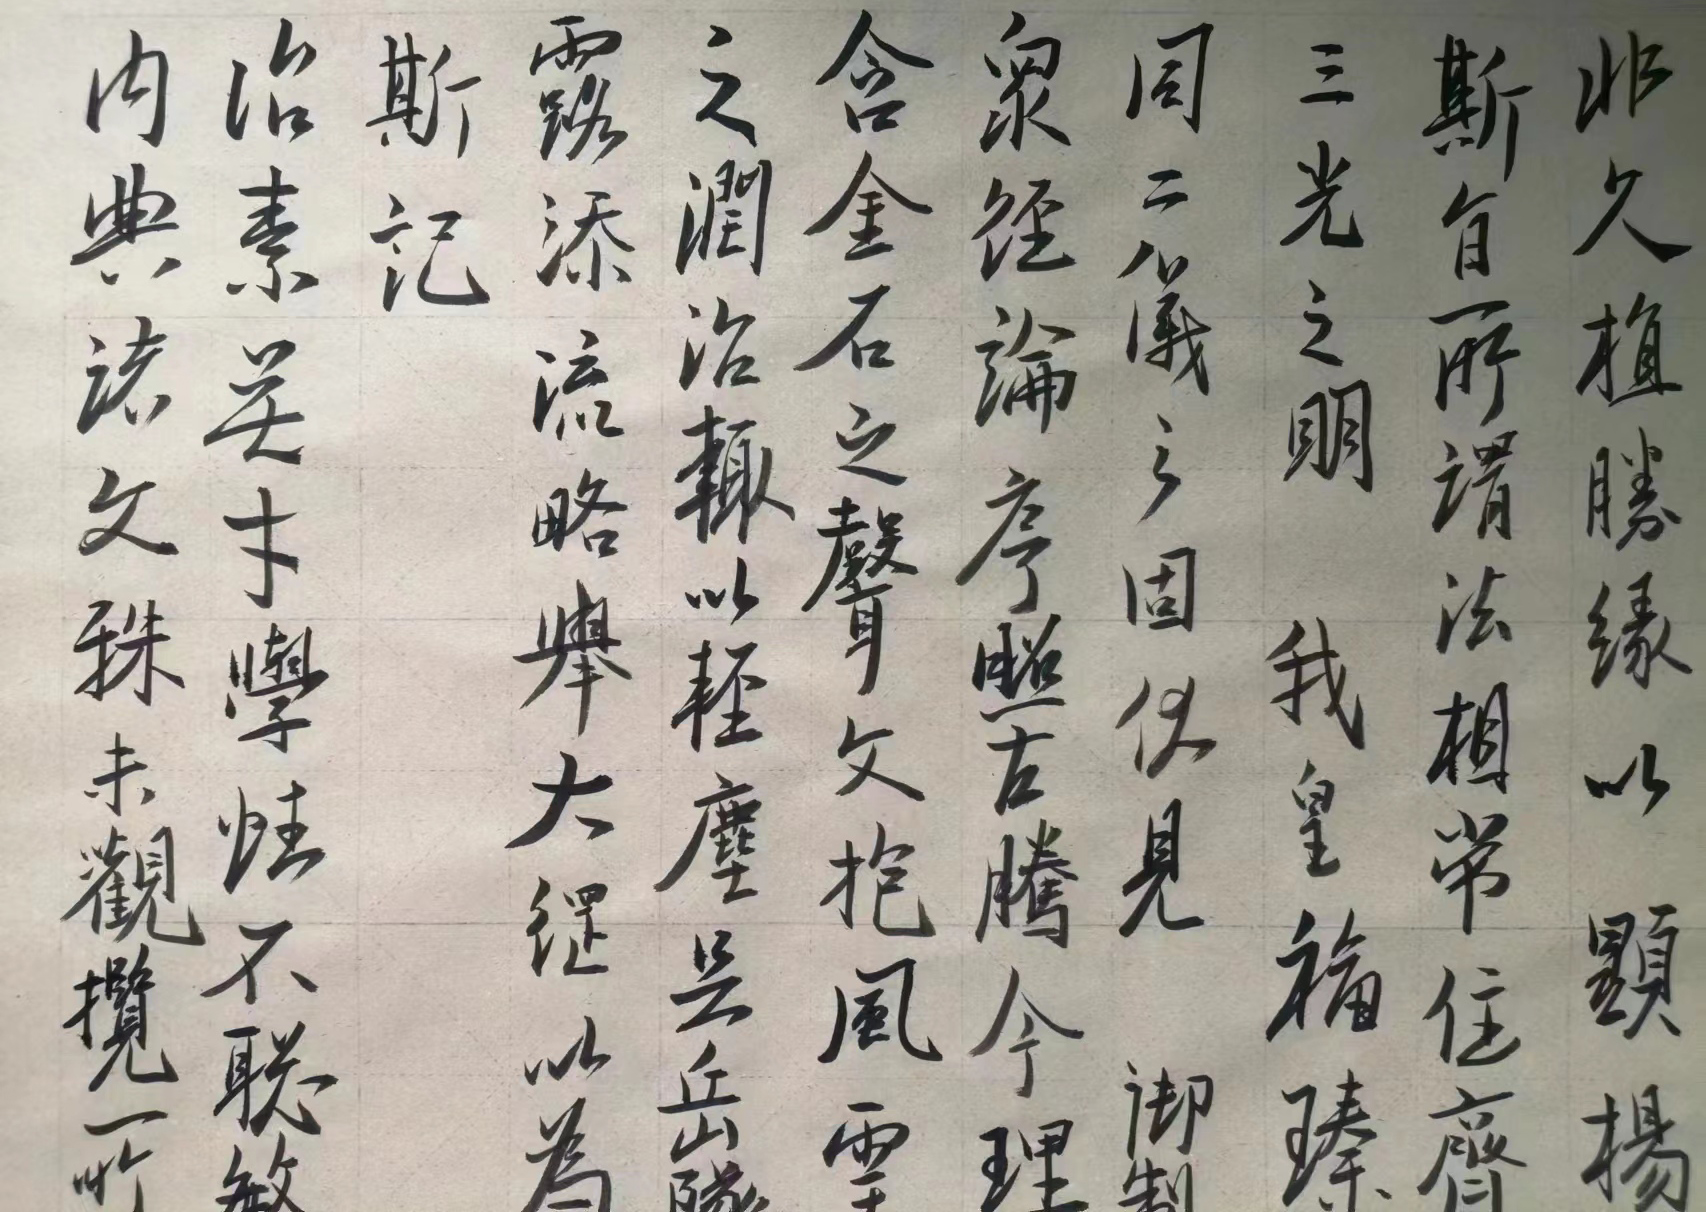 非久植勝緣以顯揚
斯旨所謂法相常住齊
三光之明我皇福臻
同二儀之固伏見御製
眾經論序照古騰今理
含金石之聲文抱風雲
之潤治輒以輕塵足岳墜
露添流略舉大綱以為
斯記
治素無才學性不聰敏
內典諸文殊未觀攬所